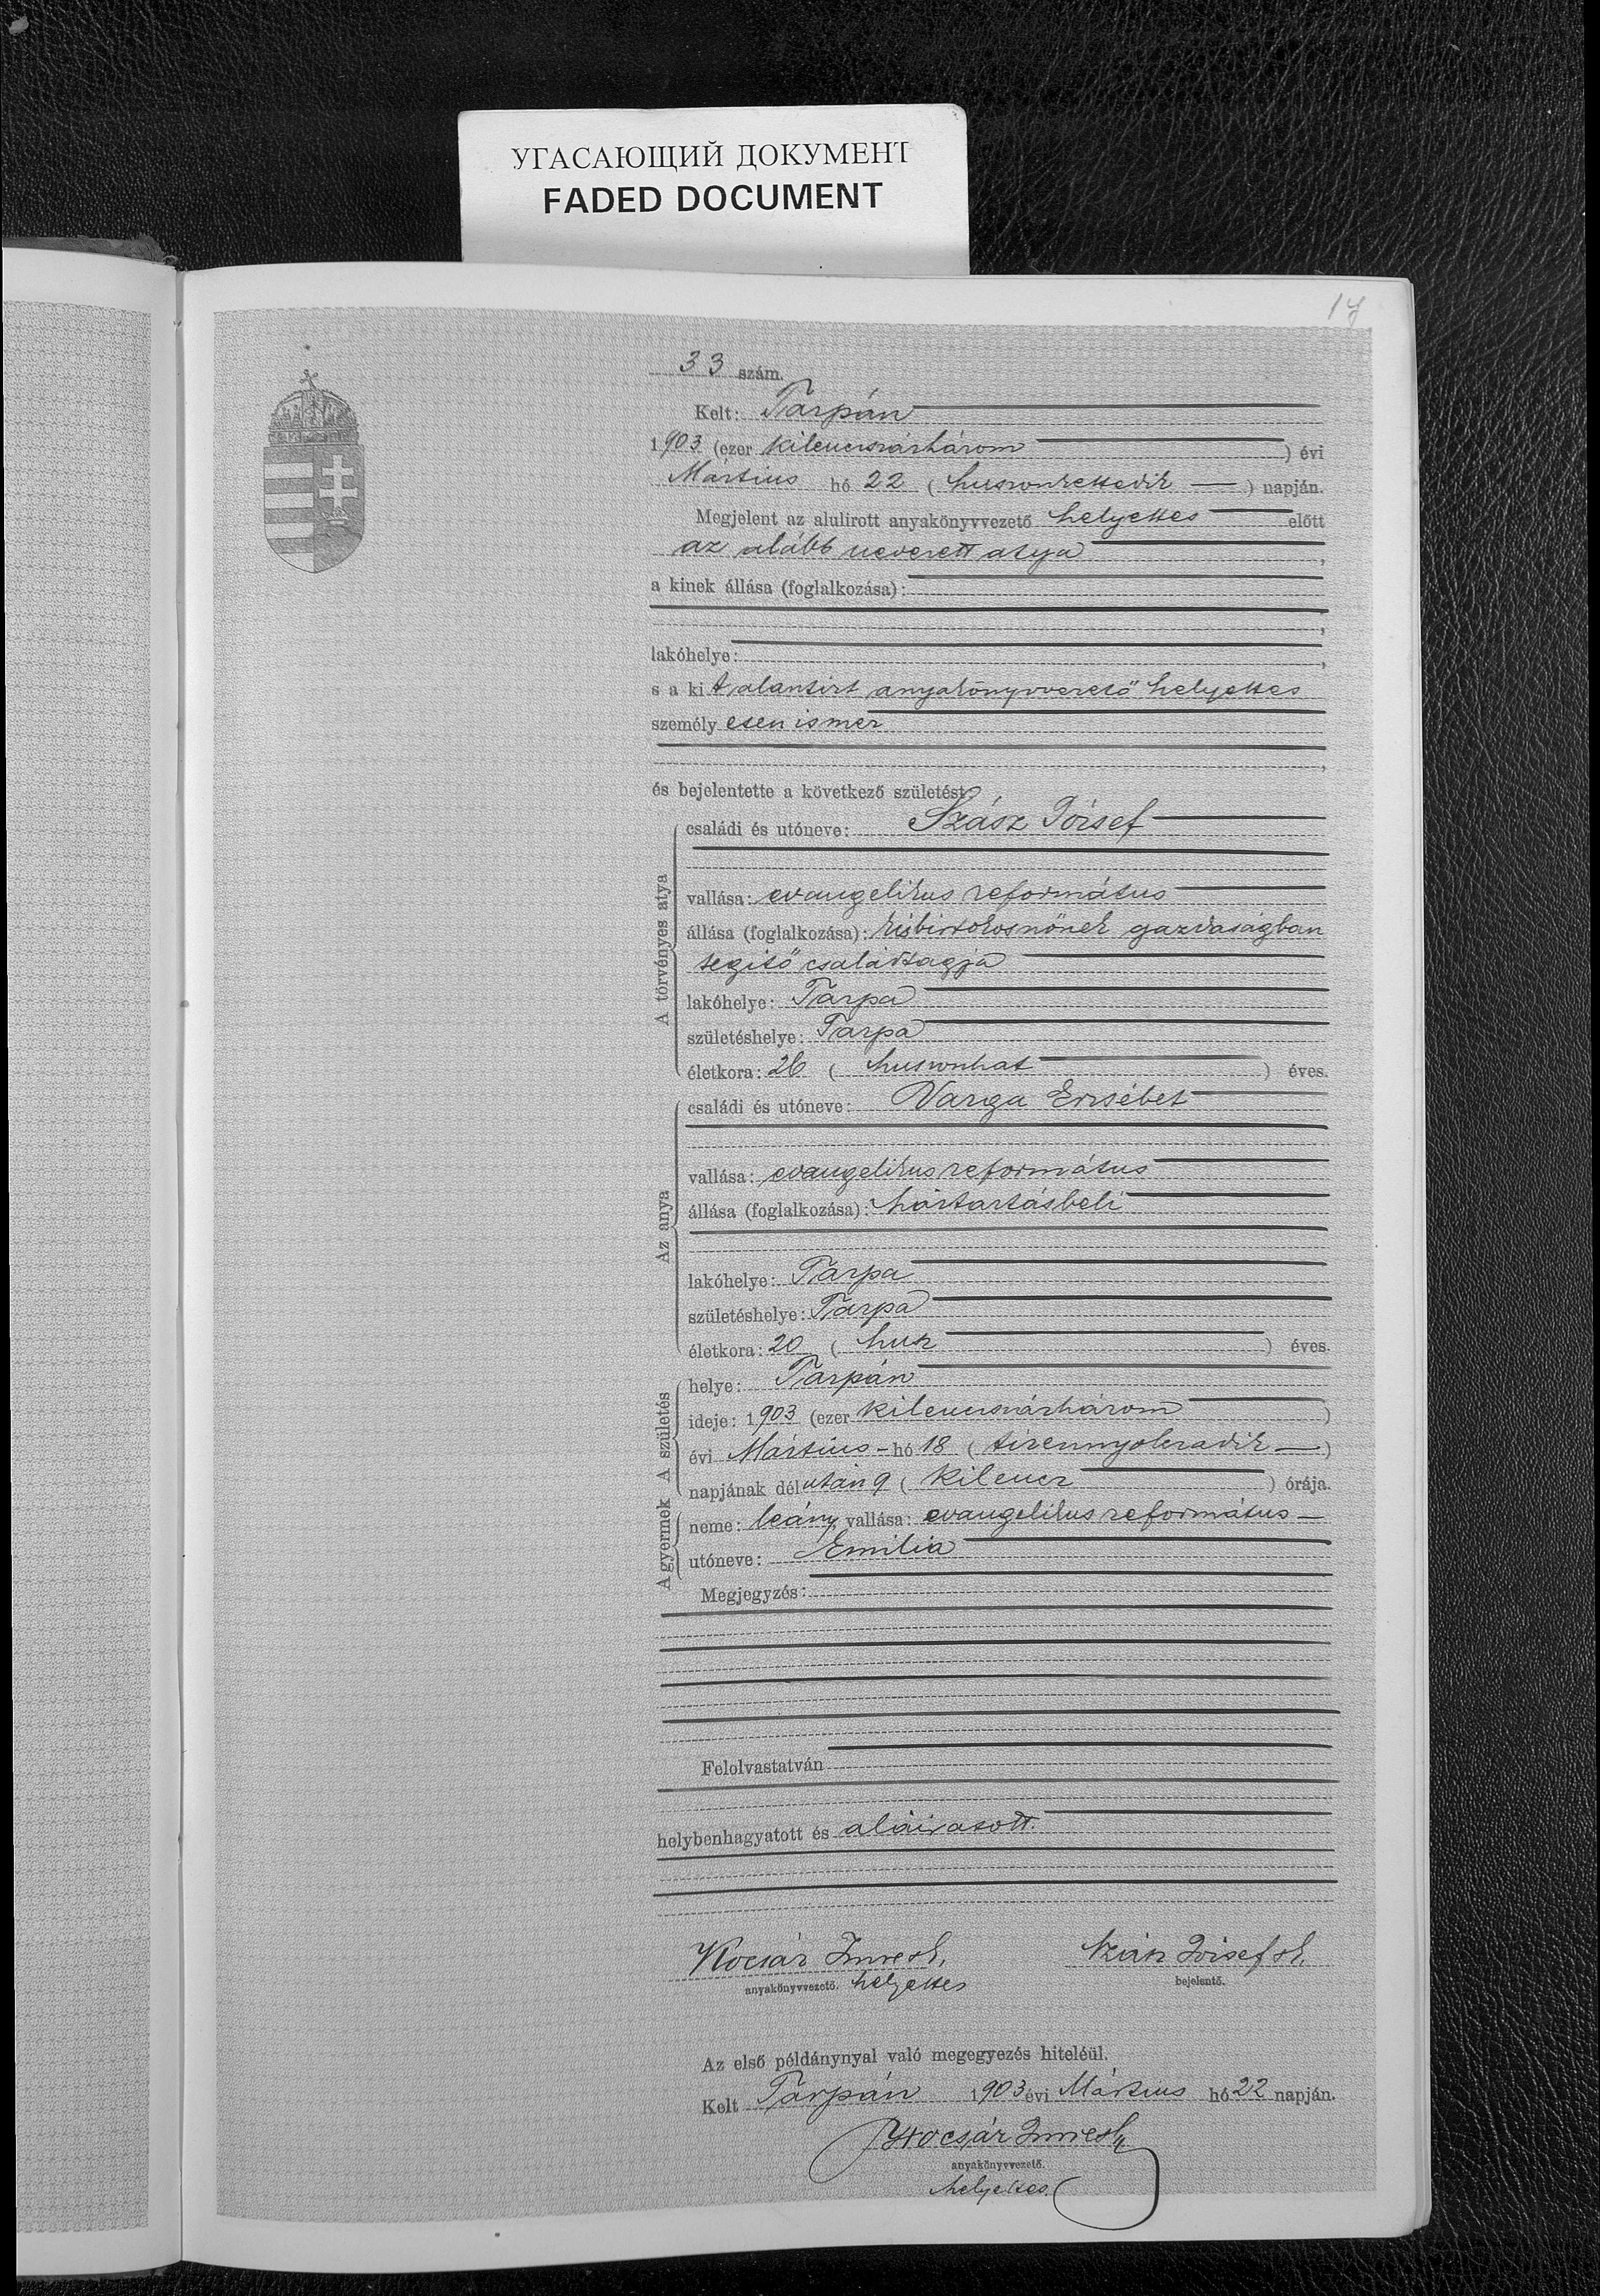 УГАСАЮЩИЙ ДОКУМЕНТ
FADED DOCUMENT
17
33 szám.
Kelt: Tarpán
1903 (ezer kilenczszázhárom ) évi
Mártius hó 22 ( huszonkettedik ) napján.
Megjelent az alulirott anyakönyvvezető helyettes előtt
az alább nevezett atya ,
a kinek állása (foglalkozása):
,
lakóhelye: ,
s a ki t alantirt anyakönyvvezető helyettes
személy esen ismer
,
és bejelentette a következő születést:
A törvényes atya
családi és utóneve: Szász József
vallása: evangelikus református
állása (foglalkozása): kisbirtokosnőnek gazdaságban
segitő családtagja
lakóhelye: Tarpa
születéshelye: Tarpa
életkora: 26 ( huszonhat ) éves.
Az anya
családi és utóneve: Varga Erzsébet
vallása: evangelikus református
állása (foglalkozása): háztartásbeli
lakóhelye: Tarpa
születéshelye: Tarpa
életkora: 20 ( husz ) éves.
A születés
helye: Tarpán
ideje: 1903 (ezer kilenczszázhárom )
évi Mártius - hó 18 ( tizennyolczadik )
napjának délután 9 ( kilencz ) órája.
A gyermek
neme: leány, vallása: evangelikus református
utóneve: Emilia
Megjegyzés:
Felolvastatván
helybenhagyatott és aláiratott.
Kocsár Imre sk, Szász József sk,
anyakönyvvezető. helyettes bejelentő.
Az első példánynyal való megegyezés hiteléül.
Kelt Tarpán 1903 évi Mártius hó 22 napján.
Kocsár Imre sk,
anyakönyvvezető.
helyettes.